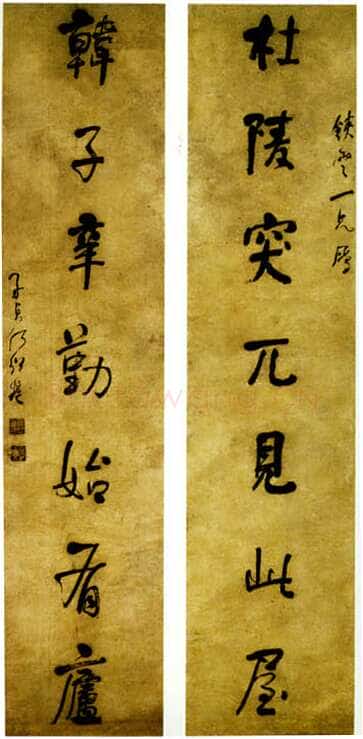 一兄屬
杜陵突兀見此屋
韓子辛勤始有廬
子貞何紹基